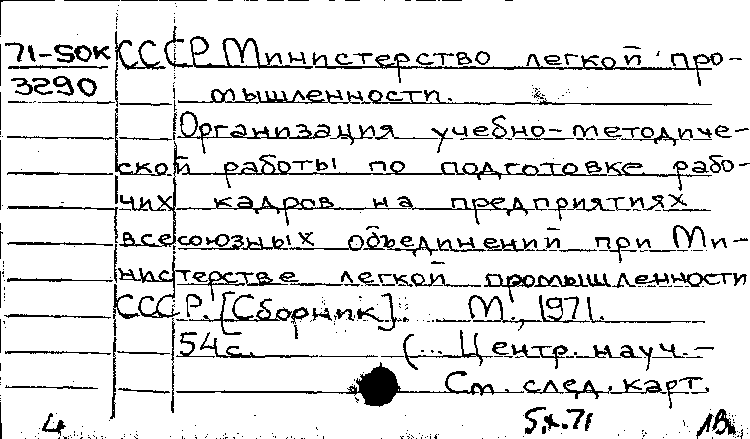 71-5OK СССР. Министерство легкой про-
3290 мышленности.
Организация учебно-методиче-
ской работы по подготовке рабо-
чих кадров на предприятиях
всесоюзных объединений при Ми-
нистерстве легкой промышленности
СССР. [Сборник]. М., 1971.
54 с. (... Центр. науч.-
См. след. карт.
4 5.X.71 1В